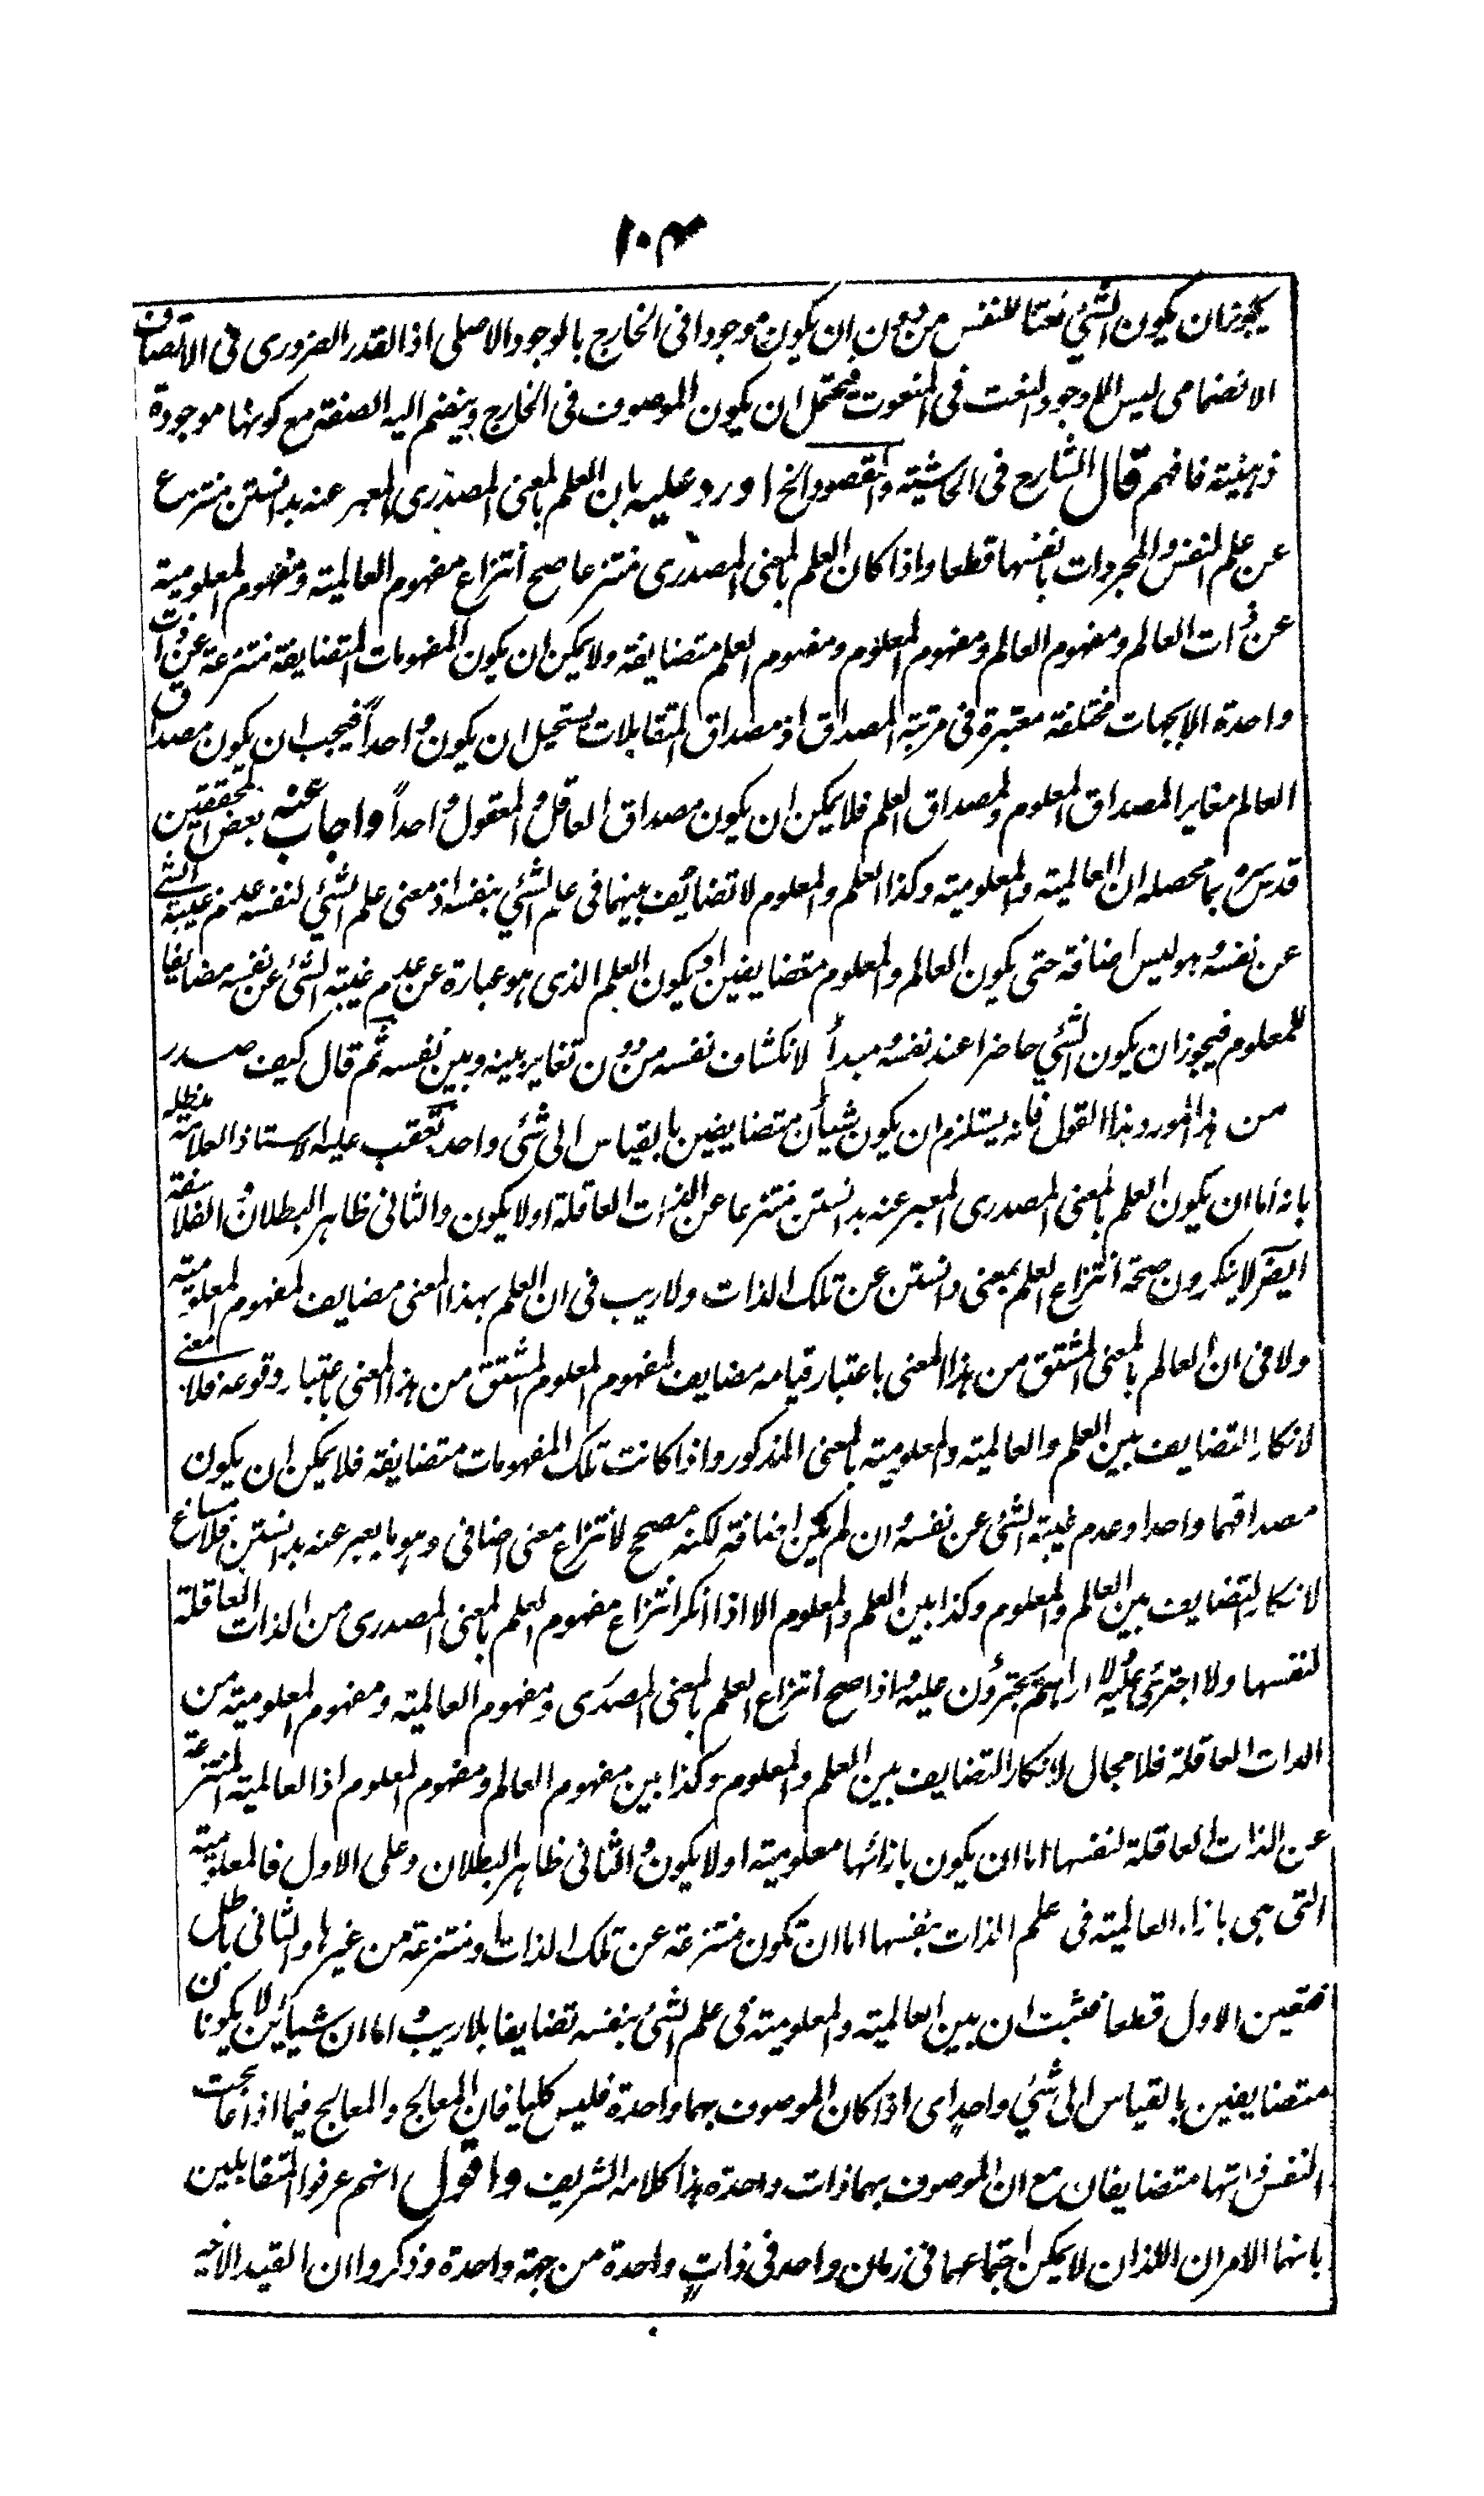 ١٠٣
يجوز ان يكون الشئ نعتا للنفس من دون ان يكون موجودا فى الخارج بالوجود الاصلى اذ القدر الضرورى فى الاتصاف
الانضمامى ليس الا وجود النعت فى المنعوت فيحتمل ان يكون الموصوف فى الخارج وينضم اليه الصفة مع كونها موجودة
ذهنية فافهم قال الشارح فى الحاشية والمقصود الخ اورد عليه بان العلم بالمعنى المصدرى المعبر عنه بدانستن منتزع
عن علم النفس والمجردات بانفسها قطعا واذا كان العلم بالمعنى المصدرى منتزعا صح انتزاع مفهوم العالمية ومفهوم المعلومية
عن ذات العالم ومفهوم العالم ومفهوم المعلوم ومفهوم العلم متضايفة ولا يمكن ان يكون المفهومات المتضايفة منتزعة عن ذات
واحدة الا بجهات مختلفة معتبرة فى مرتبة المصداق اذ مصداق المتقابلات يستحيل ان يكون واحداً فيجب ان يكون مصداق
العالم مغايرا لمصداق المعلوم ولمصداق العلم فلا يمكن ان يكون مصداق العاقل والمعقول واحداً واجاب عنه بعض المحققين
قدس سره بما محصله ان العالمية والمعلومية وكذا العلم والمعلوم لا تضايف بينهما فى علم الشئ بنفسه اذ معنى علم الشئ لنفسه عدم غيبة الشئ
عن نفسه وهو ليس اضافة حتى يكون العالم والمعلوم متضايفين او يكون العلم الذى هو عبارة عن عدم غيبة الشئ عن نفسه مضايفا
للمعلوم فيجوز ان يكون الشئ حاضرا عند نفسه ومبدأ لانكشاف نفسه من دون تغاير بينه وبين نفسه ثم قال كيف صدر
من هذا المورد هذا القول فانه يستلزم ان يكون شيأن متضايفين بالقياس الى شئ واحد تعقب عليه الاستاذ العلامة مدظله
بانه اما ان يكون العلم بالمعنى المصدرى المعبر عنه بدانستن منتزعا عن الذات العاقلة اولا يكون والثانى ظاهر البطلان والفلاسفة
ايضا لا ينكرون صحة انتزاع العلم بمعنى دانستن عن تلك الذات ولا ريب فى ان العلم بهذا المعنى مضايف لمفهوم المعلومية
ولا فى ان العالم بالمعنى المشتق من هذا المعنى باعتبار قيامه مضايف لمفهوم المعلوم المشتق من هذا المعنى باعتبار وقوعه فلا معنى
لانكار التضايف بين العلم والعالمية والمعلومية بالمعنى المذكور واذا كانت تلك المفهومات متضايفة فلا يمكن ان يكون
مصداقهما واحدا وعدم غيبة الشئ عن نفسه وان لم يكن اضافة لكنه مصحح لانتزاع معنى اضافى وهو ما يعبر عنه بدانستن فلا مساغ
لانكار التضايف بين العالم والمعلوم وكذا بين العلم والمعلوم الا اذا انكر انتزاع مفهوم العلم بالمعنى المصدرى من الذات العاقلة
لنفسها ولا اجترئ عليه ولا اراهم يجترؤن عليه واذا صح انتزاع العلم بالمعنى المصدرى ومفهوم العالمية ومفهوم المعلومية من
الذات العاقلة فلا مجال لانكار التضايف بين العلم والمعلوم وكذا بين مفهوم العالم ومفهوم المعلوم اذ العالمية المنتزعة
عن الذات العاقلة لنفسها اما ان يكون بازائها معلومية اولا يكون والثانى ظاهر البطلان وعلى الاول فالمعلومية
التى هى بازاء العالمية فى علم الذات بنفسها اما ان تكون منتزعة عن تلك الذات او منتزعة من غيرها والثانى باطل
فتعين الاول قطعا فثبت ان بين العالمية والمعلومية فى علم الشئ بنفسه تضايفا بلا ريب واما ان شيأين لا يكونان
متضايفين بالقياس الى شئ واحد اى اذا كان الموصوف بهما واحدة فليس كليا فان المعالج والمعالج فيما اذا عالجت
النفس ذاتها متضايفان مع ان الموصوف بهما ذات واحدة هذا كلامه الشريف واقول انهم عرفوا المتقابلين
بانهما الامران اللذان لا يمكن اجتماعهما فى زمان واحد فى ذات واحدة من جهة واحدة وذكروا ان القيد الاخير